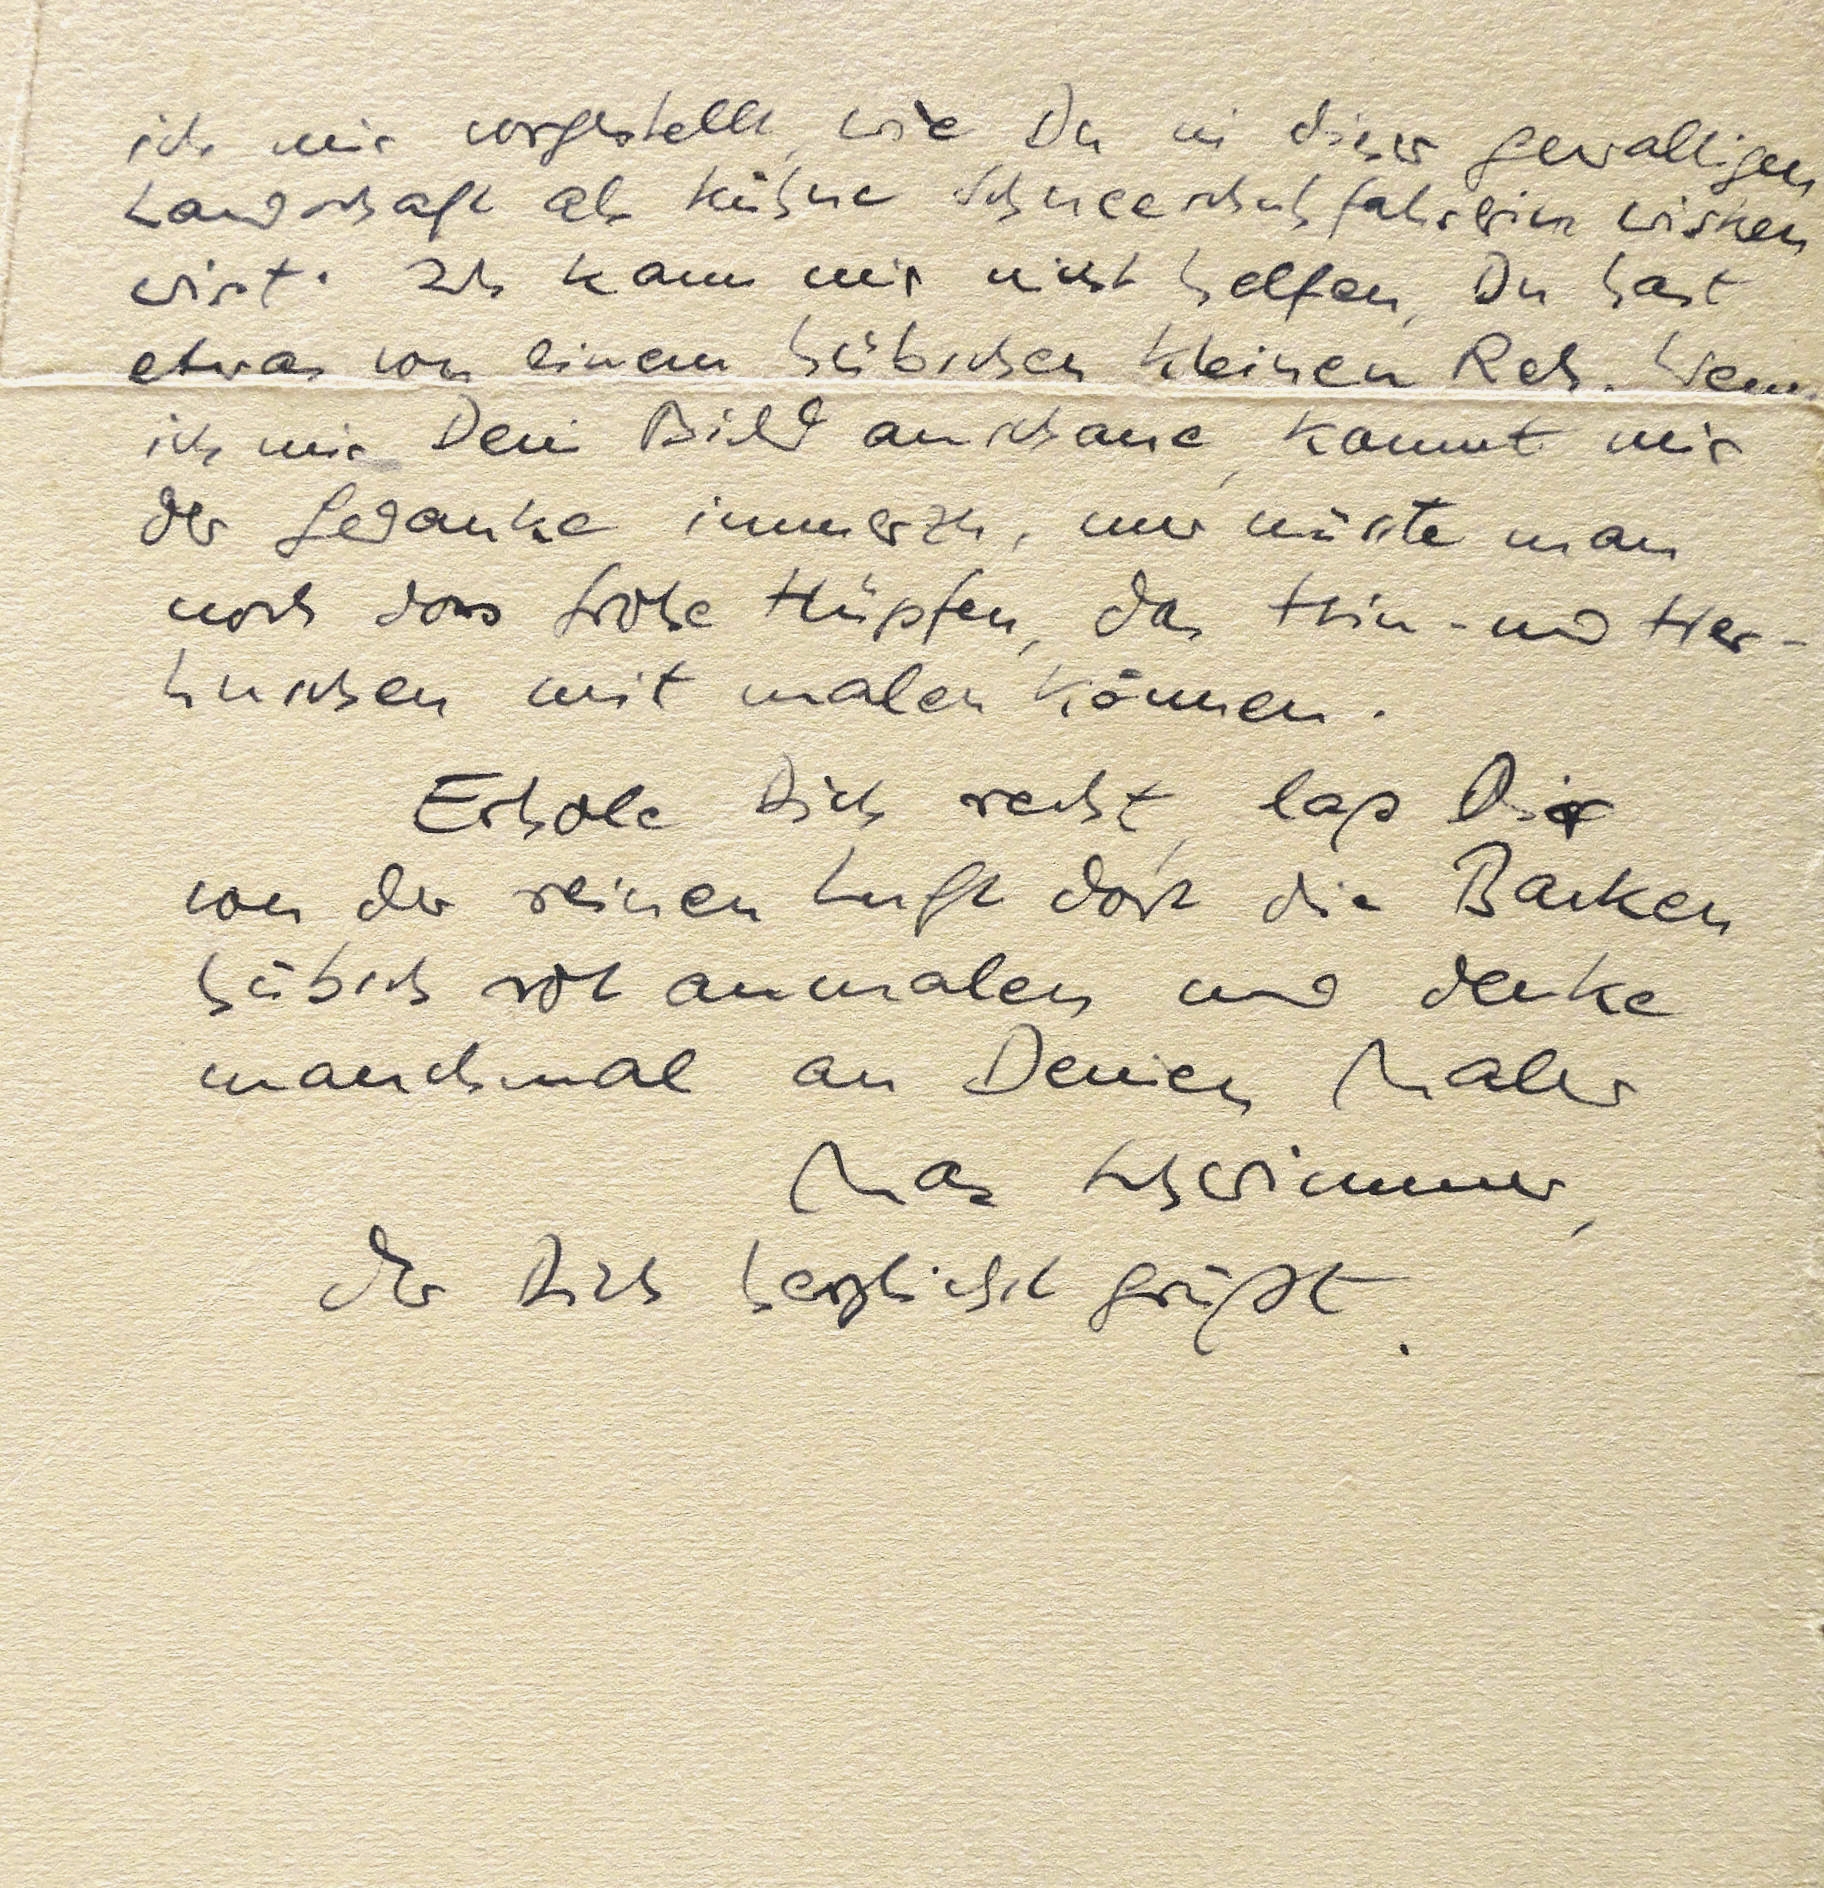 ich mir vorgestellt, wie Du in dieser gewaltigen
Landschaft als kühne Schneeschuhfahrerin wirken
wirst. Ich kann mir nicht helfen, Du hast
etwas von einem hübschen kleinen Reh. Wenn
ich mir Dein Bild anschaue, kommt mir
der Gedanke immerzu, nur müsste man
noch das frohe Hüpfen, das Hin- und Her-
huschen mit malen können.
Erhole Dich recht, laß Dir
von der reinen Luft dort die Backen
hübsch rot anmalen und denke
manchmal an Deinen Maler
Max Schwimmer,
der Dich herzlichst grüßt.